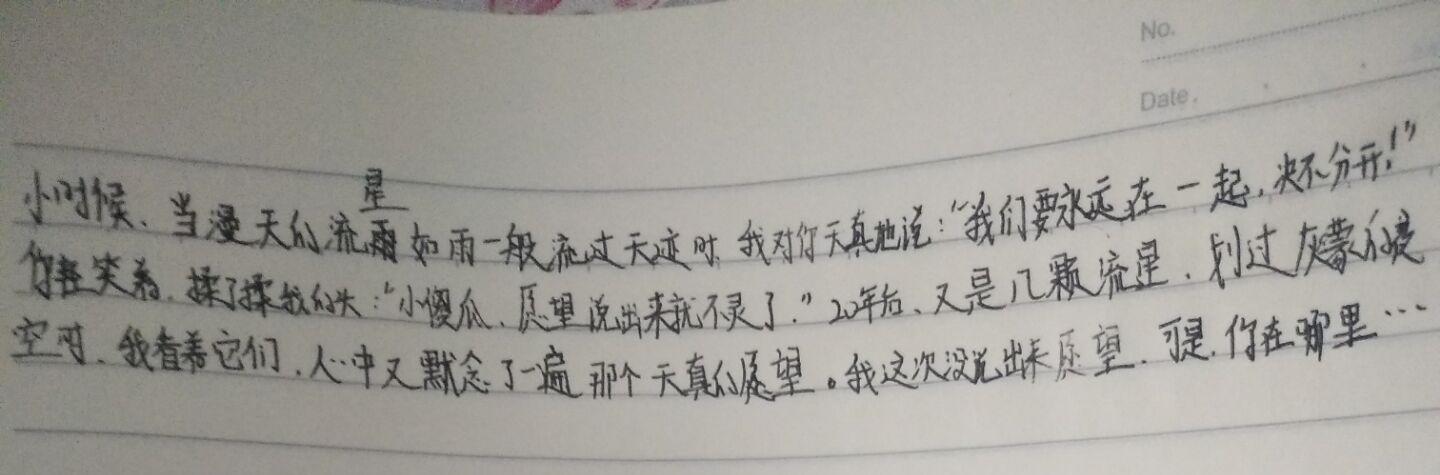 No.
Date.
小时候、当漫天的流星雨如雨一般流过天迹时,我对你天真地说:“我们要永远在一起,决不分开!”
你轻笑着,揉了揉我的头:“小傻瓜、愿望说出来就不灵了。”20年后、又是几颗流星、划过灰蒙的夜
空时、我看着它们,心中又默念了一遍那个天真的愿望。我这次没说出来愿望、可是,你在哪里…